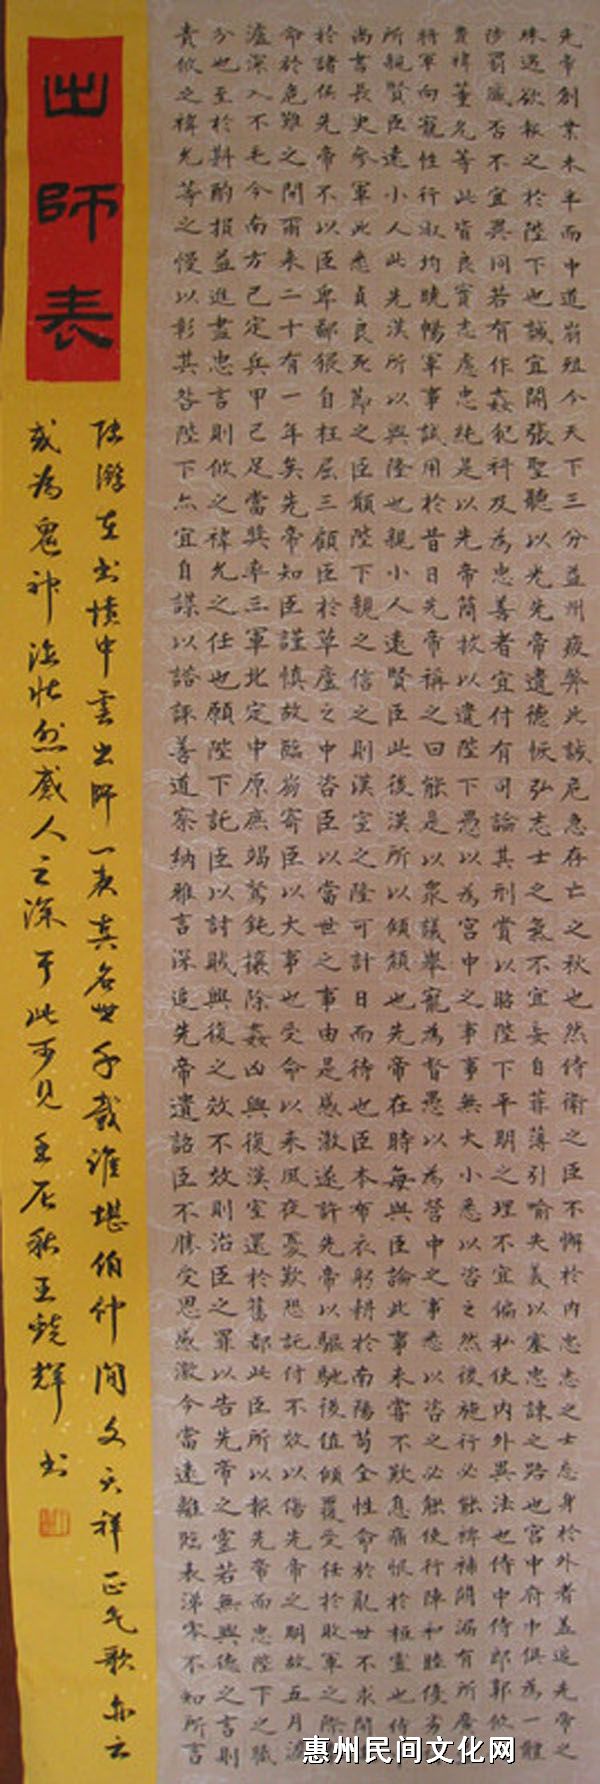 先帝創業未半而中道崩殂今天下三分益州疲弊此誠危急存亡之秋也然侍衛之臣不懈於內忠志之士忘身於外者蓋追先帝之
殊遇欲報之於陛下也誠宜開張聖聽以光先帝遺德恢弘志士之氣不宜妄自菲薄引喻失義以塞忠諫之路也宮中府中俱為一體
陟罰臧否不宜異同若有作姦犯科及為忠善者宜付有司論其刑賞以昭陛下平明之理不宜偏私使內外異法也侍中侍郎郭攸
費禕董允等此皆良實志慮忠純是以先帝簡拔以遺陛下愚以為宮中之事事無大小悉以咨之然後施行必能裨補闕漏有所廣
將軍向寵性行淑均曉暢軍事試用於昔日先帝稱之曰能是以眾議舉寵為督愚以為營中之事悉以咨之必能使行陣和睦優劣
所親賢臣遠小人此先漢所以興隆也親小人遠賢臣此後漢所以傾頹也先帝在時每與臣論此事未嘗不歎息痛恨於桓靈也侍
尚書長史參軍此悉貞良死節之臣願陛下親之信之則漢室之隆可計日而待也臣本布衣躬耕於南陽苟全性命於亂世不求聞
於諸侯先帝不以臣卑鄙猥自枉屈三顧臣於草廬之中咨臣以當世之事由是感激遂許先帝以驅馳後值傾覆受任於敗軍之際
命於危難之間爾來二十有一年矣先帝知臣謹慎故臨崩寄臣以大事也受命以來夙夜憂歎恐託付不效以傷先帝之明故五月渡
瀘深入不毛今南方已定兵甲已足當獎率三軍北定中原庶竭駑鈍攘除姦凶興復漢室還於舊都此臣所以報先帝而忠陛下之職
分也至於斟酌損益進盡忠言則攸之禕允之任也願陛下託臣以討賊興復之效不效則治臣之罪以告先帝之靈若無興德之言則
責攸之禕允等之慢以彰其咎陛下亦宜自謀以諮諏善道察納雅言深追先帝遺詔臣不勝受恩感激今當遠離臨表涕零不知所言
出師表
陸游在書憤中雲出師一表真名世千載誰堪伯仲間文天祥正氣歌亦云
或為鬼神泣壯烈感人之深于此可見壬辰秋王曉輝書
惠州民间文化网